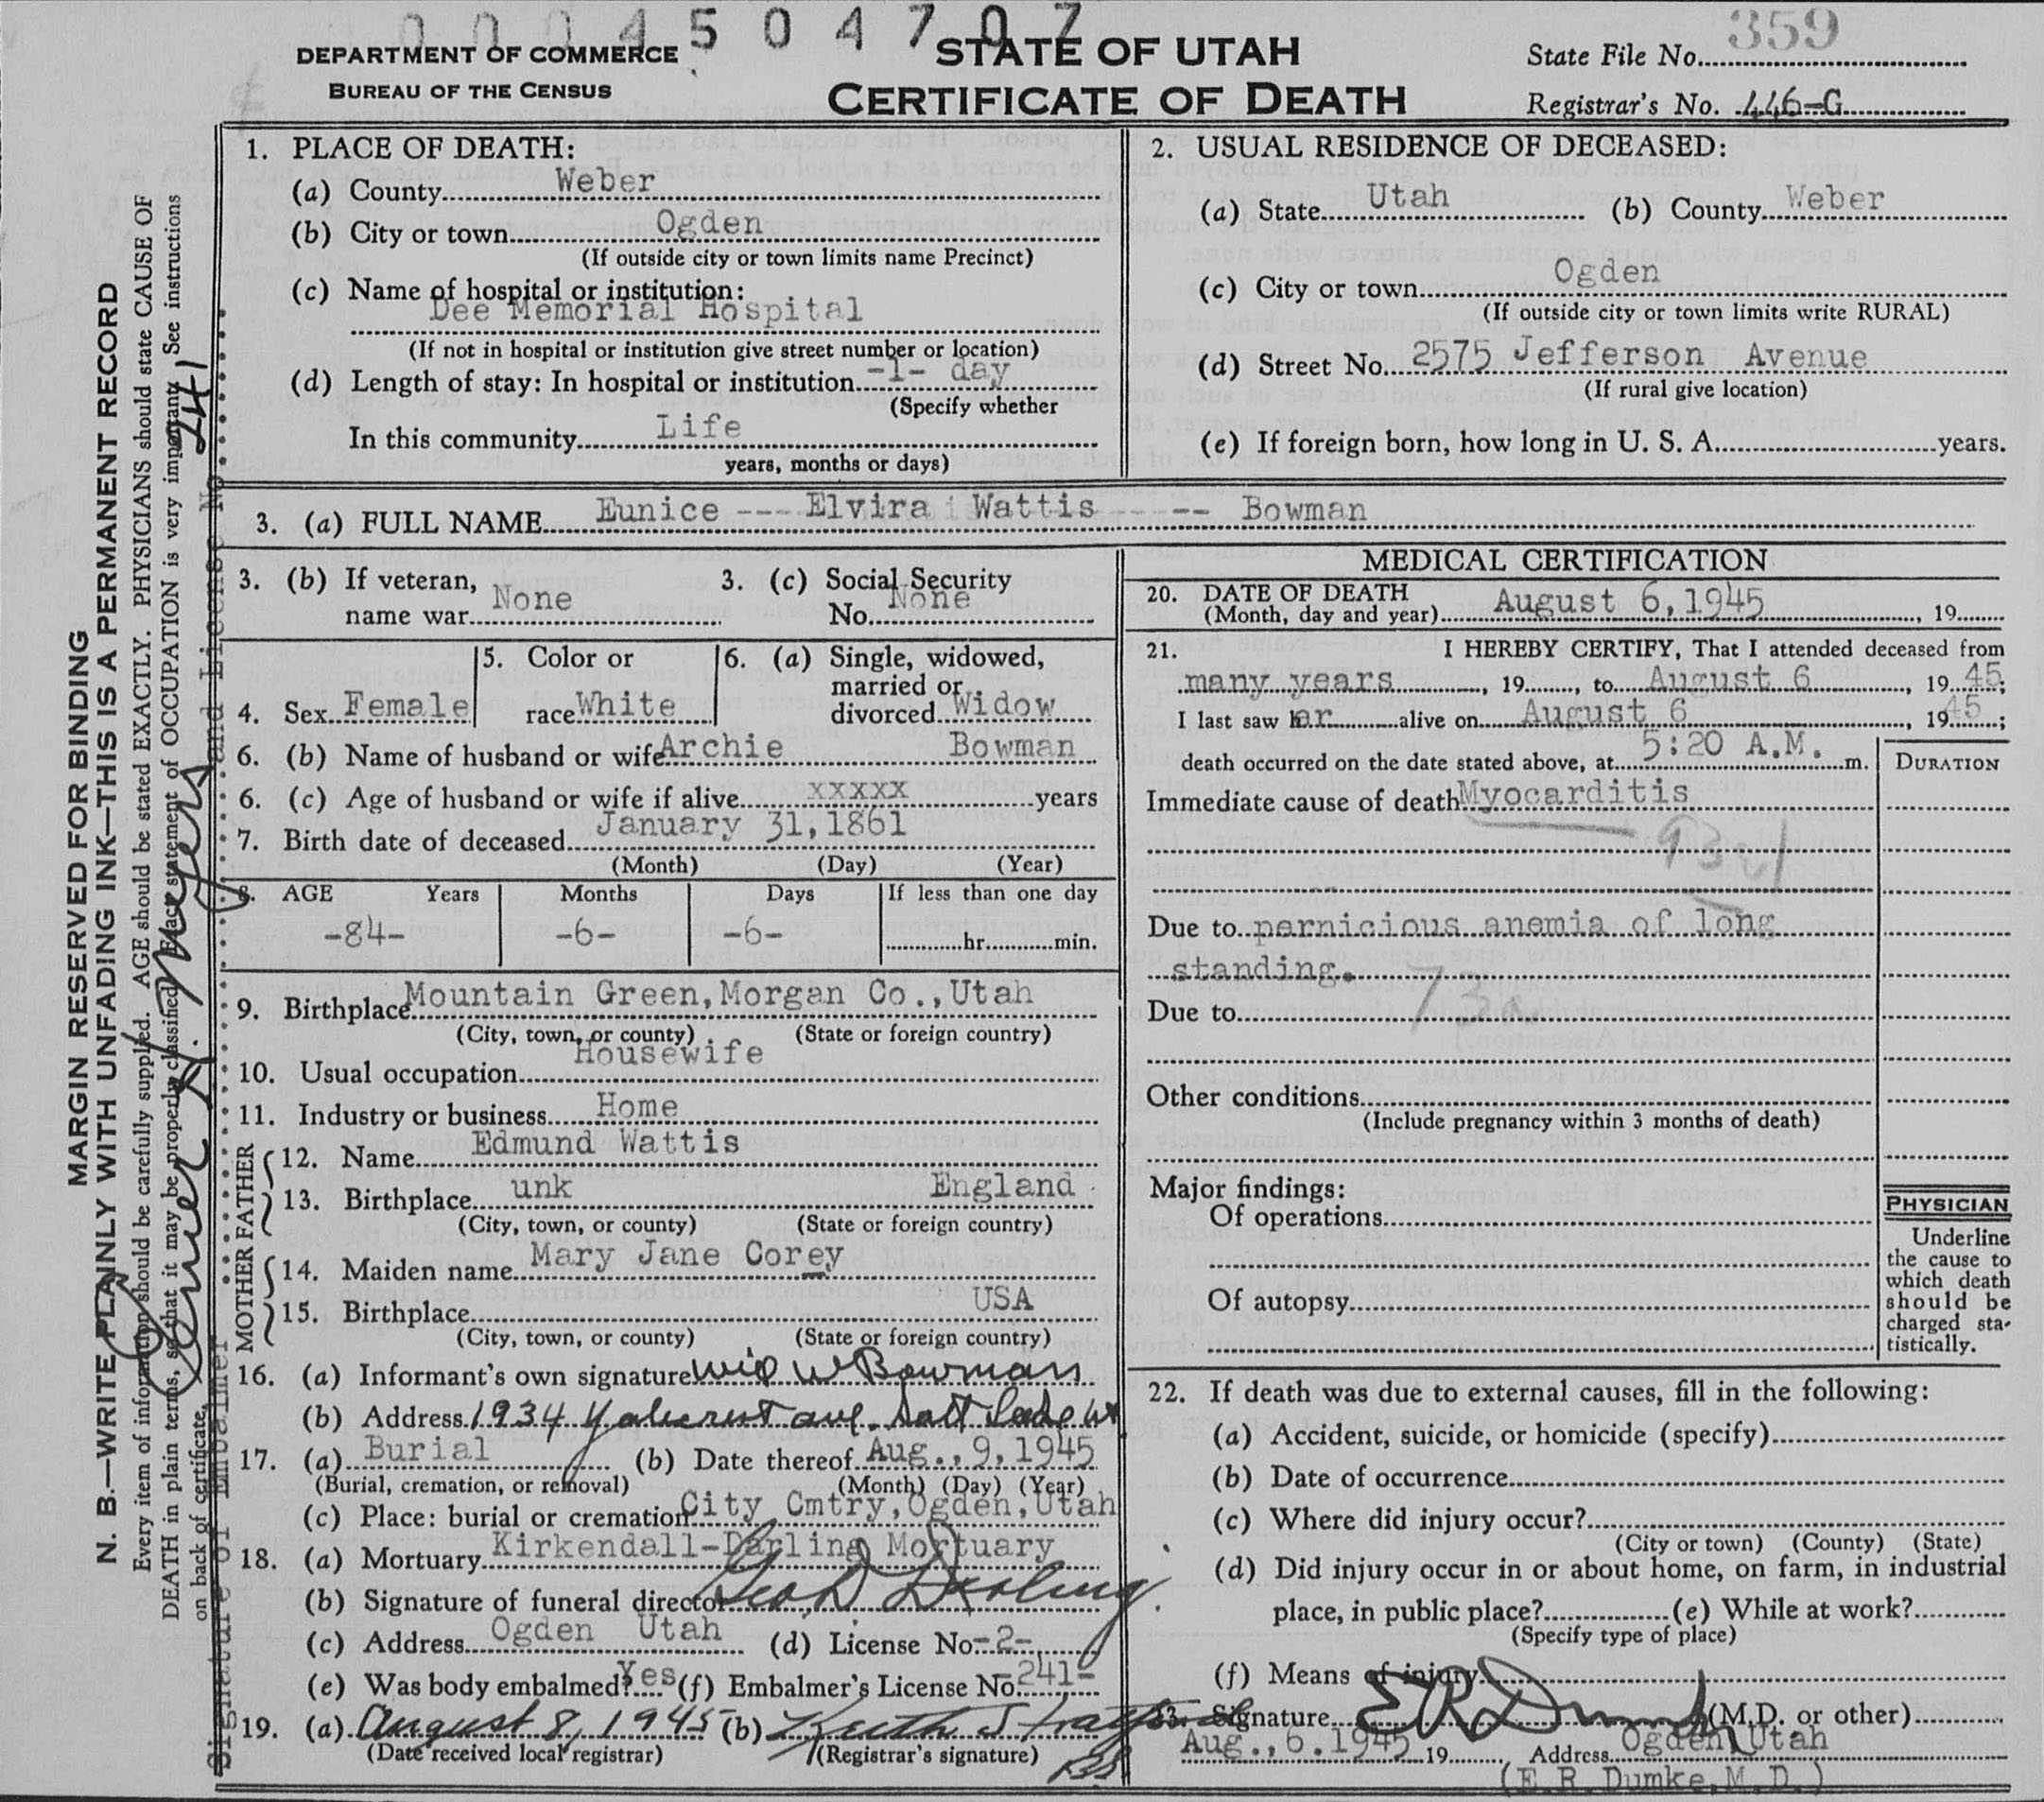 0 0 0 4 5 0 4 7 0 7
DEPARTMENT OF COMMERCE
BUREAU OF THE CENSUS
STATE OF UTAH
CERTIFICATE OF DEATH
State File No. 359
Registrar's No. 446-G
MARGIN RESERVED FOR BINDING
N. B.—WRITE PLAINLY WITH UNFADING INK—THIS IS A PERMANENT RECORD
Every item of information should be carefully supplied. AGE should be stated EXACTLY. PHYSICIANS should state CAUSE OF
DEATH in plain terms, so that it may be properly classified. Exact statement of OCCUPATION is very important. See instructions
on back of certificate.
Signature of Embalmer and License No. 241
1. PLACE OF DEATH:
(a) County Weber
(b) City or town Ogden
(If outside city or town limits name Precinct)
(c) Name of hospital or institution:
Dee Memorial Hospital
(If not in hospital or institution give street number or location)
(d) Length of stay: In hospital or institution -1- day
(Specify whether
In this community Life
years, months or days)
2. USUAL RESIDENCE OF DECEASED:
(a) State Utah (b) County Weber
(c) City or town Ogden
(If outside city or town limits write RURAL)
(d) Street No. 2575 Jefferson Avenue
(If rural give location)
(e) If foreign born, how long in U. S. A. years.
3. (a) FULL NAME Eunice --- Elvira Wattis -- Bowman
3. (b) If veteran, name war None
3. (c) Social Security No. None
4. Sex Female
5. Color or race White
6. (a) Single, widowed, married or divorced Widow
6. (b) Name of husband or wife Archie Bowman
6. (c) Age of husband or wife if alive xxxxx years
7. Birth date of deceased January 31, 1861
(Month) (Day) (Year)
8. AGE Years Months Days If less than one day
-84- -6- -6- hr. min.
9. Birthplace Mountain Green, Morgan Co., Utah
(City, town, or county) (State or foreign country)
10. Usual occupation Housewife
11. Industry or business Home
FATHER
12. Name Edmund Wattis
13. Birthplace unk England
(City, town, or county) (State or foreign country)
MOTHER
14. Maiden name Mary Jane Corey
15. Birthplace USA
(City, town, or county) (State or foreign country)
16. (a) Informant's own signature W Bowman
(b) Address 1934 Yalecrest ave. Salt Lake
17. (a) Burial (b) Date thereof Aug., 9, 1945
(Burial, cremation, or removal) (Month) (Day) (Year)
(c) Place: burial or cremation City Cmtry, Ogden, Utah
18. (a) Mortuary Kirkendall-Darling Mortuary
(b) Signature of funeral director Geo D Darling
(c) Address Ogden Utah (d) License No. -2-
(e) Was body embalmed? Yes (f) Embalmer's License No. -241-
19. (a) August 8, 1945 (b) Keith Stratford
(Date received local registrar) (Registrar's signature)
MEDICAL CERTIFICATION
20. DATE OF DEATH
(Month, day and year) August 6, 1945, 19
21. I HEREBY CERTIFY, That I attended deceased from
many years, 19, to August 6, 19 45;
I last saw her alive on August 6, 19 45;
death occurred on the date stated above, at 5:20 A.M. m.
DURATION
Immediate cause of death Myocarditis
93d
Due to pernicious anemia of long
standing.
73a
Due to
Other conditions
(Include pregnancy within 3 months of death)
Major findings:
Of operations
Of autopsy
PHYSICIAN
Underline
the cause to
which death
should be
charged sta-
tistically.
22. If death was due to external causes, fill in the following:
(a) Accident, suicide, or homicide (specify)
(b) Date of occurrence
(c) Where did injury occur?
(City or town) (County) (State)
(d) Did injury occur in or about home, on farm, in industrial
place, in public place? (e) While at work?
(Specify type of place)
(f) Means of injury
23. Signature E R Dumke (M.D. or other)
Aug., 6, 1945 19 Address Ogden Utah
(E.R. Dumke, M.D.)